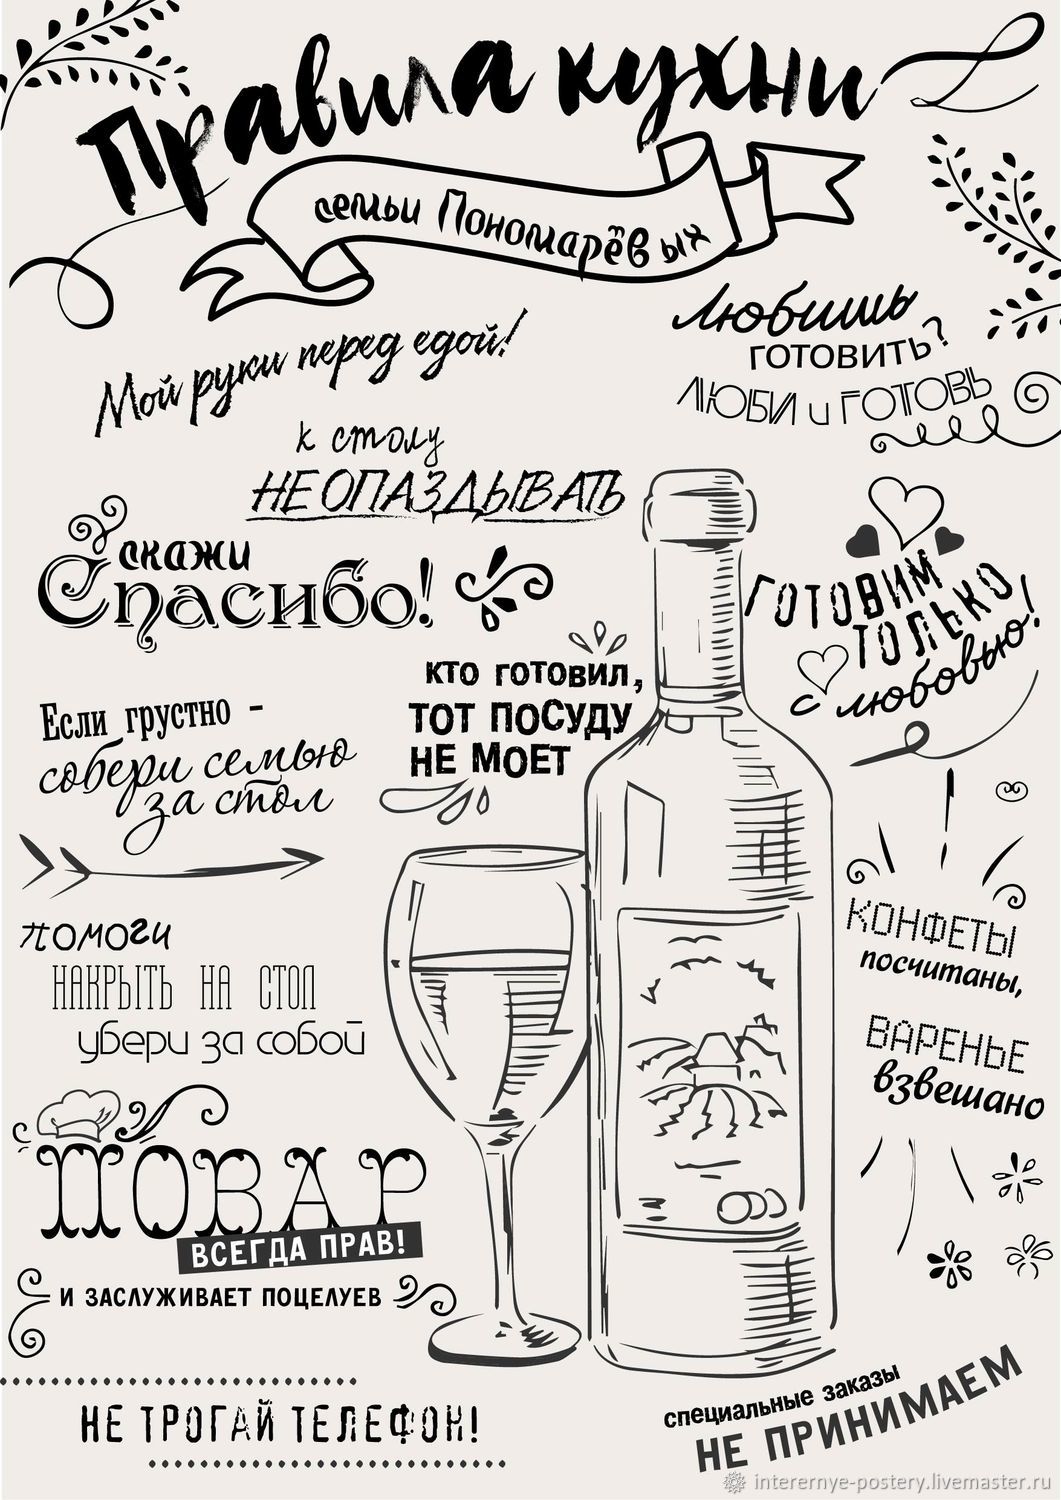 Правила кухни
семьи Пономарёвых
Мой руки перед едой!
Любишь
готовить?
ЛЮБИ и ГОТОВЬ
к столу
НЕ ОПАЗДЫВАТЬ
скажи
Спасибо!
ГОТОВИМ
ТОЛЬКО
с любовью!
КТО ГОТОВИЛ,
ТОТ ПОСУДУ
НЕ МОЕТ
Если грустно -
собери семью
за стол
КОНФЕТЫ
посчитаны,
ВАРЕНЬЕ
взвешано
ПОМОГИ
НАКРЫТЬ НА СТОЛ
убери за собой
ПОВАР
ВСЕГДА ПРАВ!
И ЗАСЛУЖИВАЕТ ПОЦЕЛУЕВ
НЕ ТРОГАЙ ТЕЛЕФОН!
специальные заказы
НЕ ПРИНИМАЕМ
interernye-postery.livemaster.ru